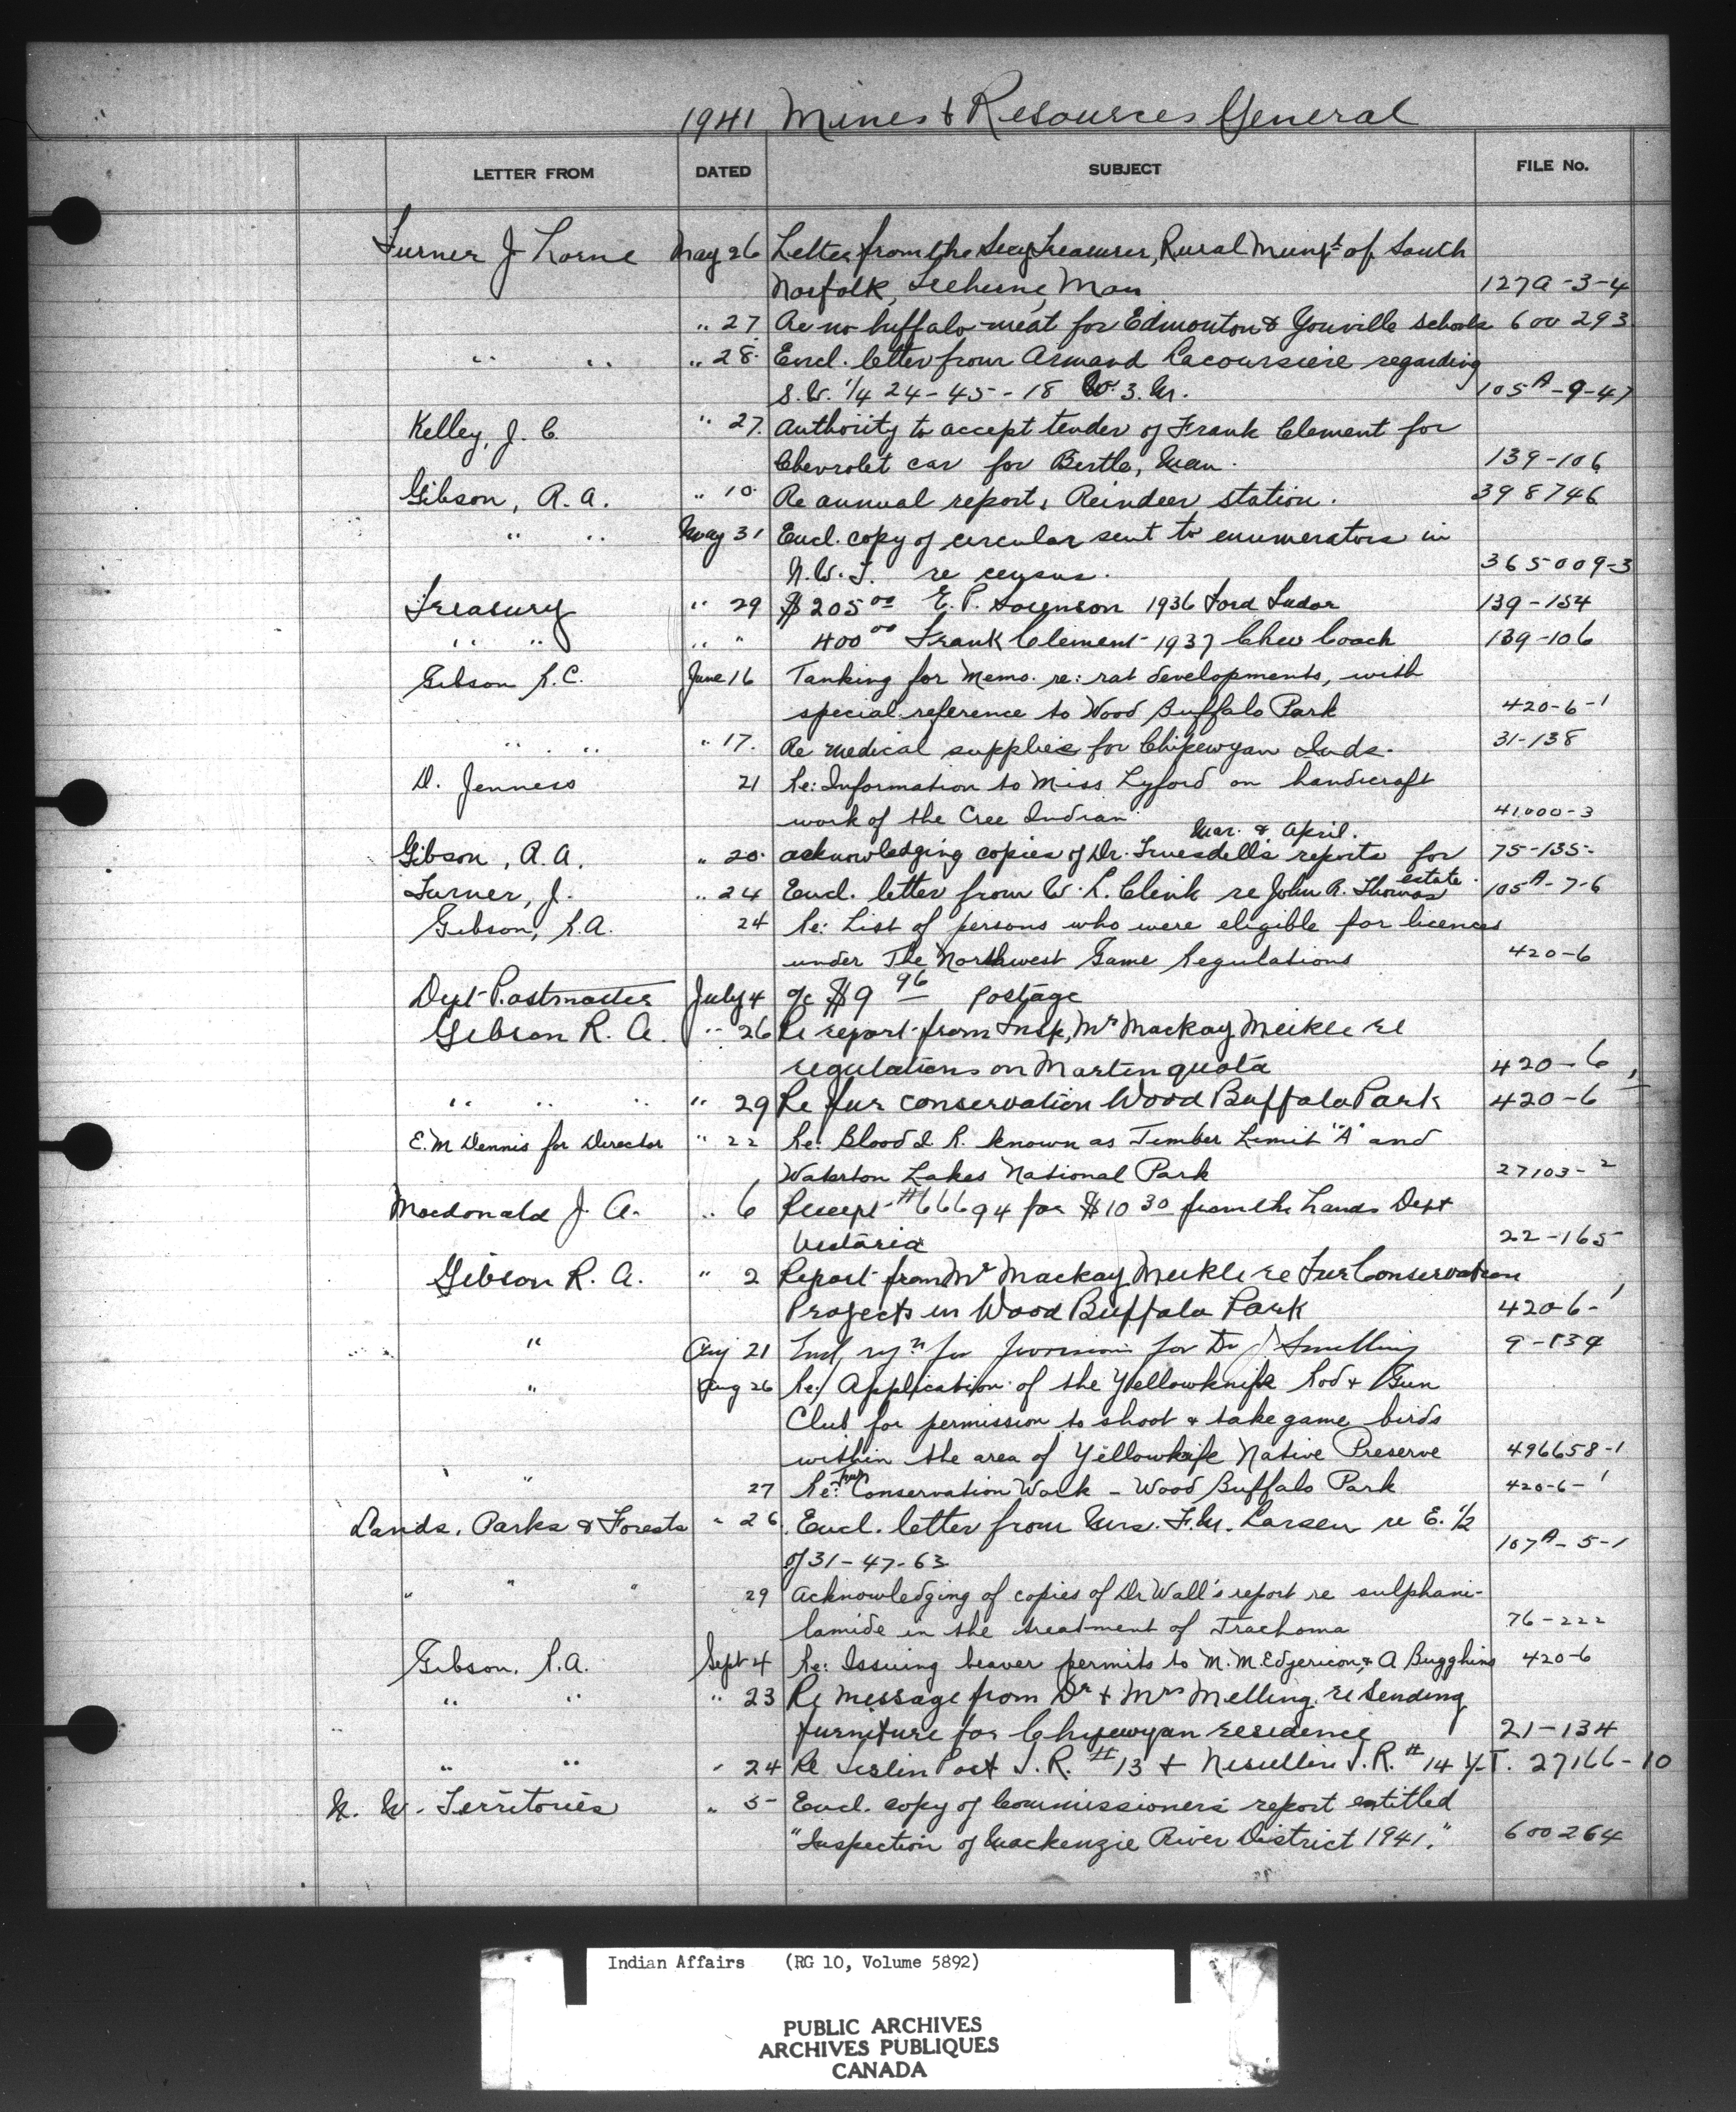 1941 Mines & Resources General
LETTER FROM DATED SUBJECT FILE No.
Turner J Lorne May 26 Letter from the Secy Treasurer, Rural Munpt of South
Norfolk, Treherne, Man 127A-3-4
" 27 Re no buffalo meat for Edmonton & Youville Schools 600 293
" " " 28. Encl. letter from Armand Lacoursiere regarding
S.W. 1/4 24-45-18 W. 3. M. 105A-9-47
Kelley, J. C. " 27. Authority to accept tender of Frank Clement for
Chevrolet car for Birtle, Man. 139-106
Gibson, R. A. " 10. Re annual report, Reindeer station. 398746
" " May 31 Encl. copy of circular sent to enumerators in
N.W.T. re census. 365009-3
Treasury " 29 $205 00 E. P. Sorenson 1936 Ford Tudor 139-154
" " " " 400 00 Frank Clement 1937 Chev Coach 139-106
Gibson R.C. June 16 Tanking for Memo. re: rat developments, with
special reference to Wood Buffalo Park 420-6-1
" " " 17. Re medical supplies for Chipewyan Inds. 31-138
D. Jenness 21 Re: Information to Miss Lyford on handicraft
work of the Cree Indian 41,000-3
Mar. & April.
Gibson, R. A. " 20. acknowledging copies of Dr. Truesdell's reports for 75-135-
Turner, J. " 24 Encl. letter from W. L. Clink re John R. Thomas estate. 105A-7-6
Gibson, R.A. 24 Re: List of persons who were eligible for licences
under The Northwest Game Regulations 420-6
Dept Postmaster July 4 a/c $9 96 postage
Gibson R. A. " 26 Re report from Insp, Mr Mackay Meikle re
regulations on Marten quota 420-6
" " " " 29 Re fur conservation Wood Buffalo Park 420-6-1
E. M Dennis for Director " 22 Re: Blood I. R. known as Timber Limit "A" and
Waterton Lakes National Park 27103-2
Macdonald J. A. " 6 Receipt #66694 for $10 30 from the Lands Dept
Victoria 22-165
Gibson R. A. " 2 Report from Mr Mackay Meikle re Fur Conservation
Projects in Wood Buffalo Park 420-6-1
" Aug 21 for for Dr 9-134
" Aug 26 Re: Application of the Yellowknife Rod & Gun
Club for permission to shoot & take game birds
within the area of Yellowknife Native Preserve 496658-1
" 27 Re: Fur Conservation Work - Wood Buffalo Park 420-6-1
Lands, Parks & Forests " 26 Encl. letter from Mrs. F. M. Larsen re E. 1/2
of 31-47-63 107A-5-1
" " " 29 Acknowledging of copies of Dr Wall's report re sulphani-
lamide in the treatment of Trachoma 76-222
Gibson, R.A. Sept 4 Re: Issuing beaver permits to M. M. Edjericon, & A Bugghins 420-6
" " " 23 Re message from Dr & Mrs Melling re sending
furniture for Chipewyan residence 21-134
" " " 24 Re Teslin Post I. R. #13 & Nisutlin I. R. #14 Y.T. 27166-10
N. W. Territories " 5- Encl. copy of Commissioners report entitled
"Inspection of Mackenzie River District 1941." 600264
Indian Affairs (RG 10, Volume 5892)
PUBLIC ARCHIVES
ARCHIVES PUBLIQUES
CANADA